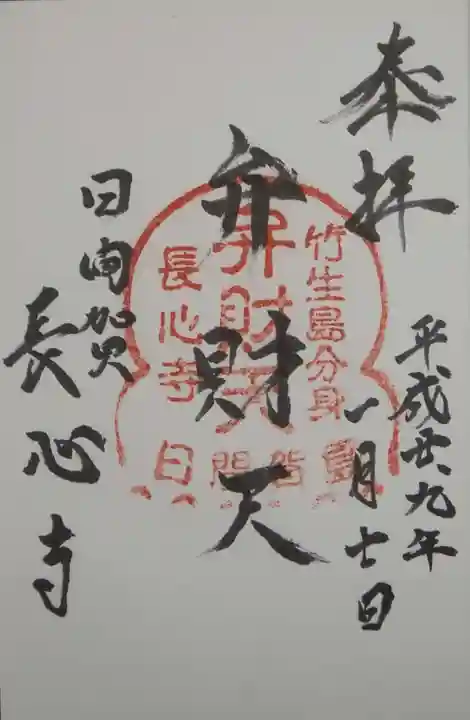 奉拝
平成廿九年
一月七日
弁財天
日向賀
長心寺
竹生島分身
弁財天
長心寺